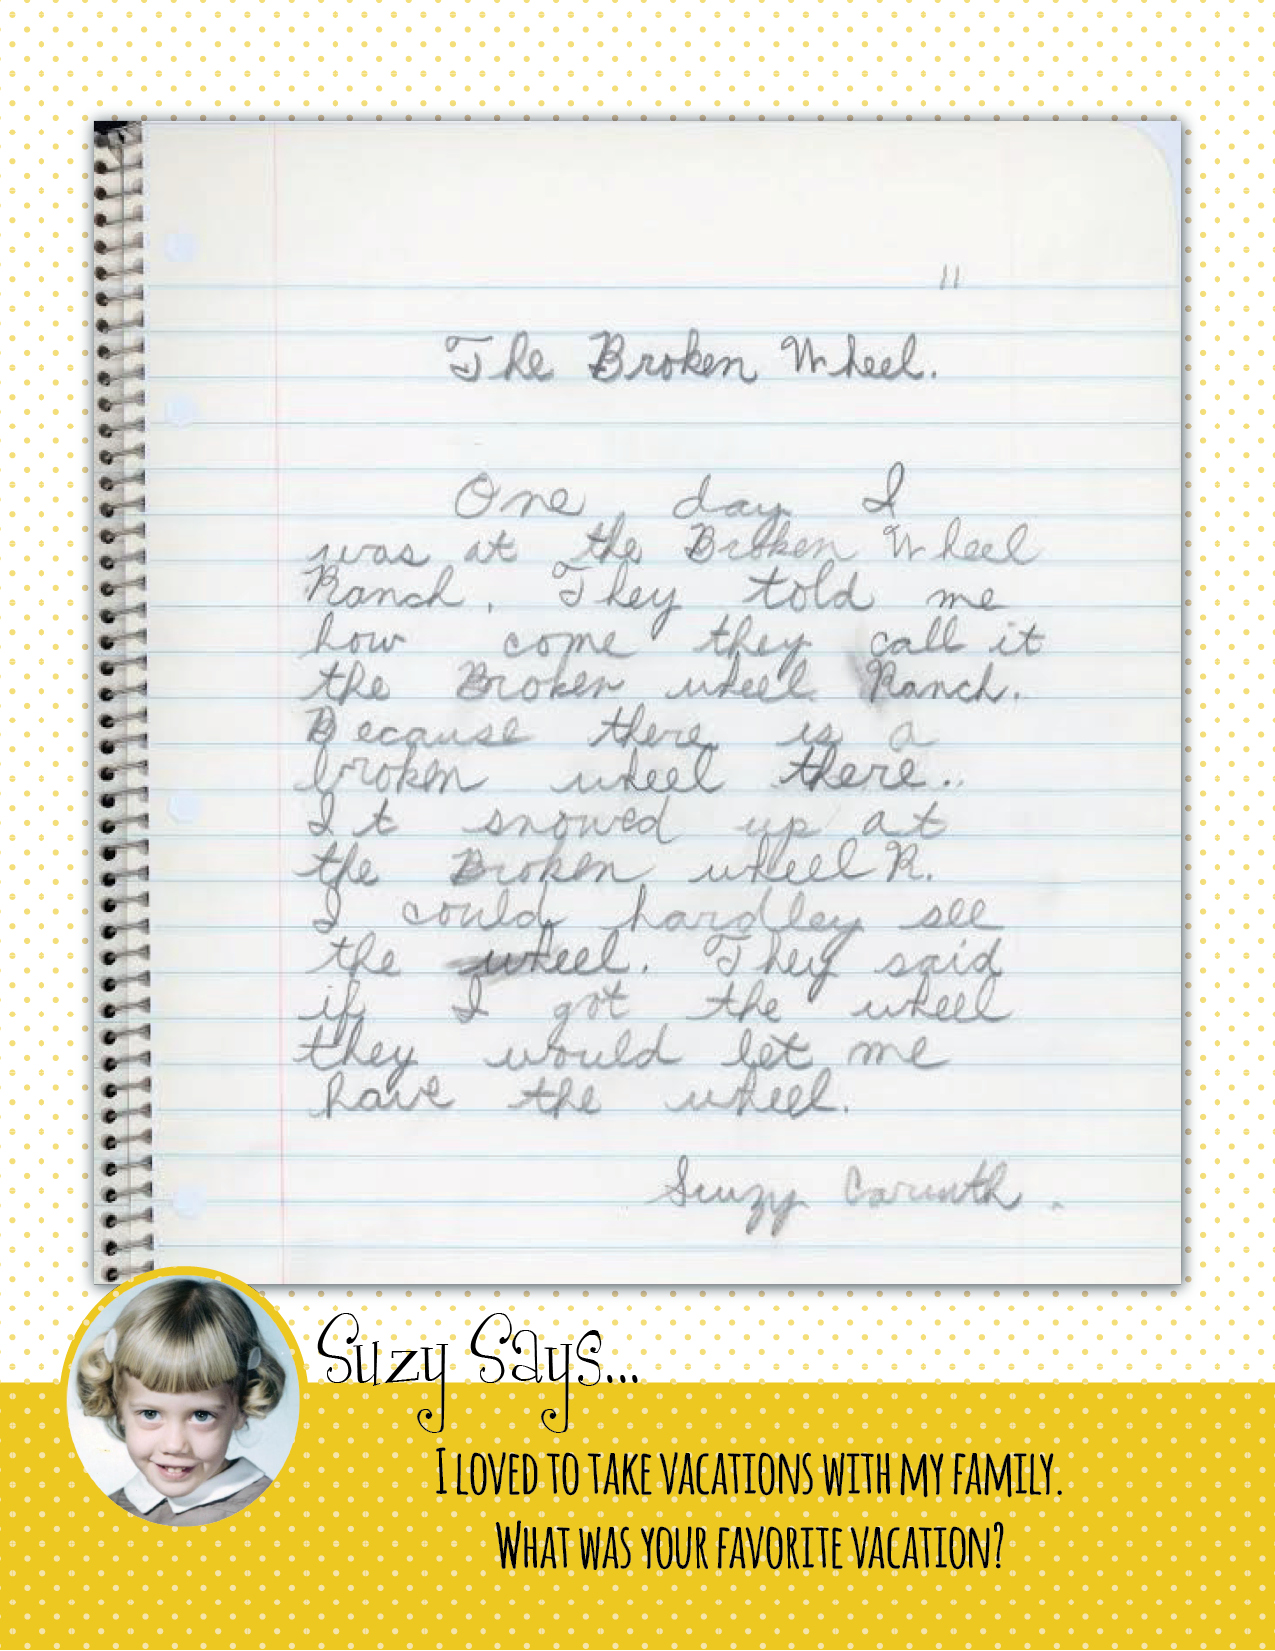 11
The Broken Wheel.
One day I
was at the Broken Wheel
Ranch. They told me
how come they call it
the Broken wheel Ranch.
Because there is a
broken wheel there..
It snowed up at
the Broken wheel R.
I could hardley see
the wheel. They said
if I got the wheel
they would let me
have the wheel.
Suzy Caruth.
Suzy Says...
I loved to take vacations with my family.
What was your favorite vacation?